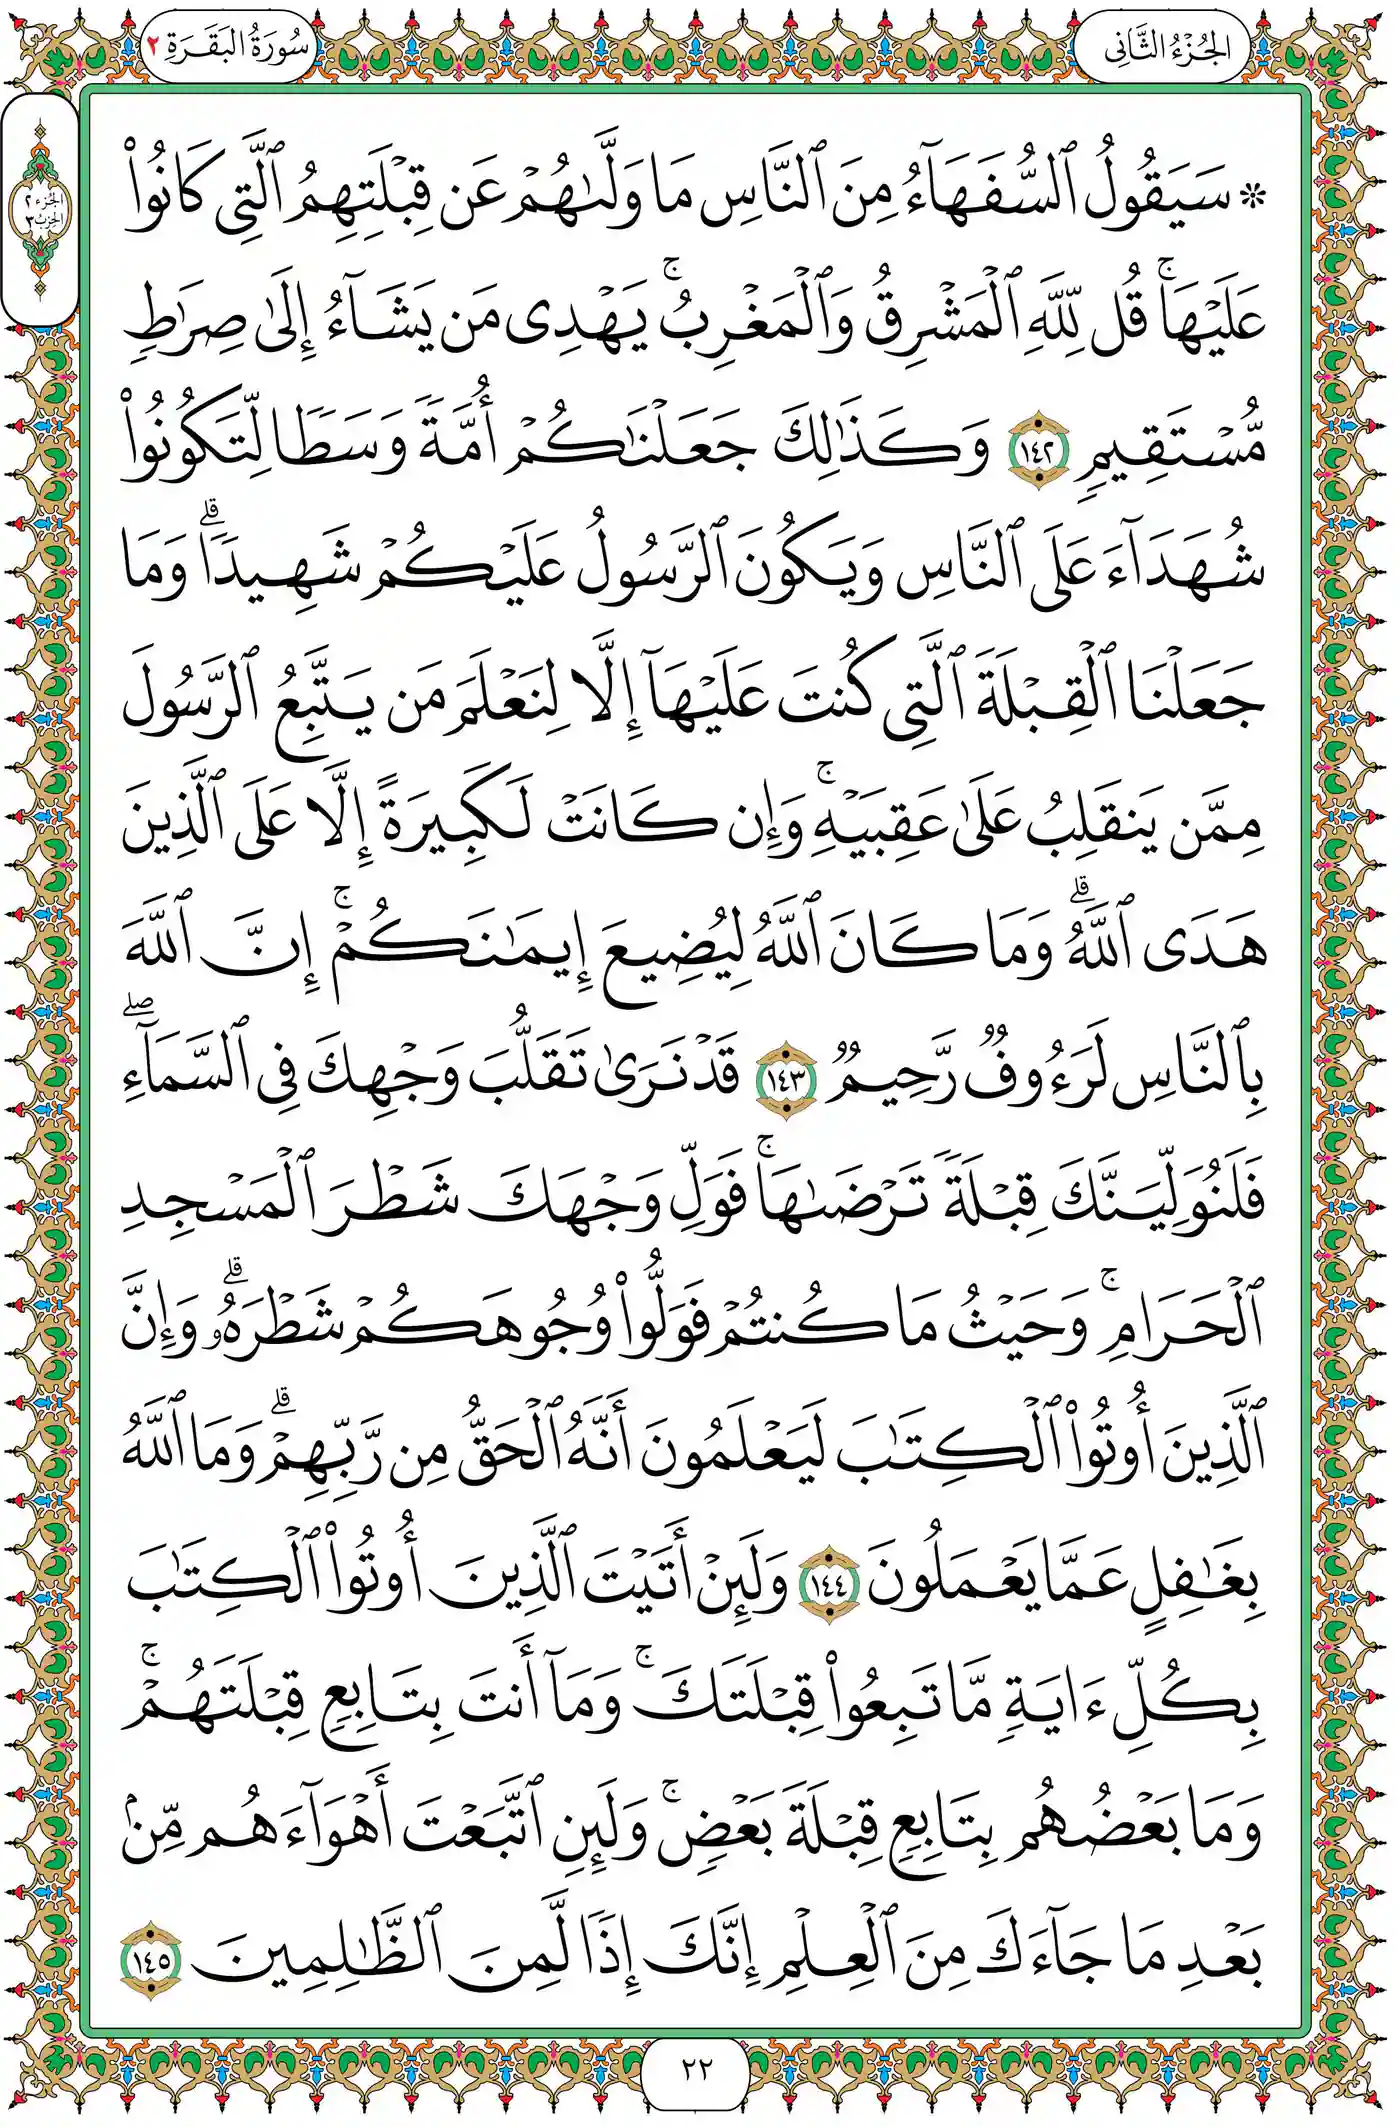 الجُزْءُ الثَّانِي
سُورَةُ البَقَرَةِ ٢
الجزء ٢
الحزب ٣
۞ سَيَقُولُ ٱلسُّفَهَآءُ مِنَ ٱلنَّاسِ مَا وَلَّىٰهُمۡ عَن قِبۡلَتِهِمُ ٱلَّتِي كَانُواْ
عَلَيۡهَاۚ قُل لِّلَّهِ ٱلۡمَشۡرِقُ وَٱلۡمَغۡرِبُۚ يَهۡدِي مَن يَشَآءُ إِلَىٰ صِرَٰطٖ
مُّسۡتَقِيمٖ ١٤٢ وَكَذَٰلِكَ جَعَلۡنَٰكُمۡ أُمَّةٗ وَسَطٗا لِّتَكُونُواْ
شُهَدَآءَ عَلَى ٱلنَّاسِ وَيَكُونَ ٱلرَّسُولُ عَلَيۡكُمۡ شَهِيدٗاۗ وَمَا
جَعَلۡنَا ٱلۡقِبۡلَةَ ٱلَّتِي كُنتَ عَلَيۡهَآ إِلَّا لِنَعۡلَمَ مَن يَتَّبِعُ ٱلرَّسُولَ
مِمَّن يَنقَلِبُ عَلَىٰ عَقِبَيۡهِۚ وَإِن كَانَتۡ لَكَبِيرَةً إِلَّا عَلَى ٱلَّذِينَ
هَدَى ٱللَّهُۗ وَمَا كَانَ ٱللَّهُ لِيُضِيعَ إِيمَٰنَكُمۡۚ إِنَّ ٱللَّهَ
بِٱلنَّاسِ لَرَءُوفٞ رَّحِيمٞ ١٤٣ قَدۡ نَرَىٰ تَقَلُّبَ وَجۡهِكَ فِي ٱلسَّمَآءِۖ
فَلَنُوَلِّيَنَّكَ قِبۡلَةٗ تَرۡضَىٰهَاۚ فَوَلِّ وَجۡهَكَ شَطۡرَ ٱلۡمَسۡجِدِ
ٱلۡحَرَامِۚ وَحَيۡثُ مَا كُنتُمۡ فَوَلُّواْ وُجُوهَكُمۡ شَطۡرَهُۥۗ وَإِنَّ
ٱلَّذِينَ أُوتُواْ ٱلۡكِتَٰبَ لَيَعۡلَمُونَ أَنَّهُ ٱلۡحَقُّ مِن رَّبِّهِمۡۗ وَمَا ٱللَّهُ
بِغَٰفِلٍ عَمَّا يَعۡمَلُونَ ١٤٤ وَلَئِنۡ أَتَيۡتَ ٱلَّذِينَ أُوتُواْ ٱلۡكِتَٰبَ
بِكُلِّ ءَايَةٖ مَّا تَبِعُواْ قِبۡلَتَكَۚ وَمَآ أَنتَ بِتَابِعٖ قِبۡلَتَهُمۡۚ
وَمَا بَعۡضُهُم بِتَابِعٖ قِبۡلَةَ بَعۡضٖۚ وَلَئِنِ ٱتَّبَعۡتَ أَهۡوَآءَهُم مِّنۢ
بَعۡدِ مَا جَآءَكَ مِنَ ٱلۡعِلۡمِ إِنَّكَ إِذٗا لَّمِنَ ٱلظَّٰلِمِينَ ١٤٥
٢٢